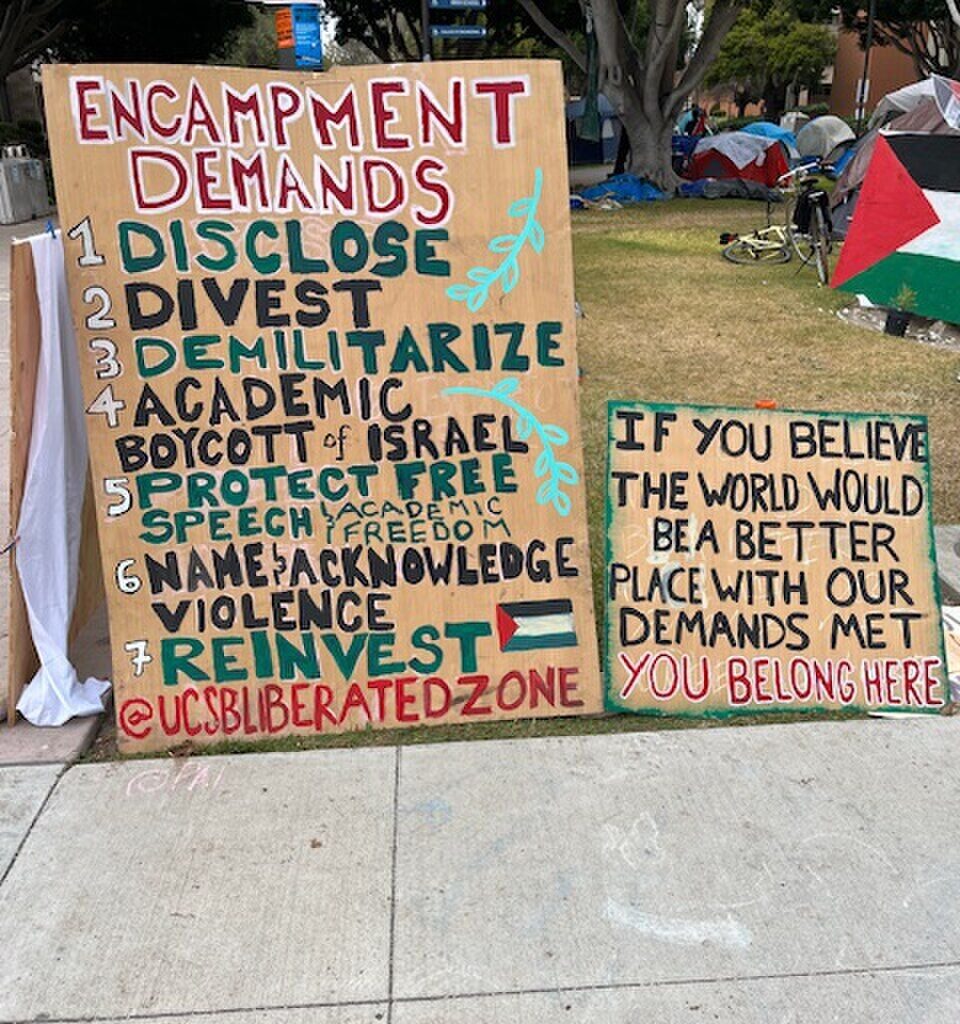 ENCAMPMENT
DEMANDS
1 DISCLOSE
2 DIVEST
3 DEMILITARIZE
4 ACADEMIC
BOYCOTT of ISRAEL
5 PROTECT FREE
SPEECH & ACADEMIC
FREEDOM
6 NAME & ACKNOWLEDGE
VIOLENCE
7 REINVEST
@UCSBLIBERATEDZONE
IF YOU BELIEVE
THE WORLD WOULD
BE A BETTER
PLACE WITH OUR
DEMANDS MET
YOU BELONG HERE